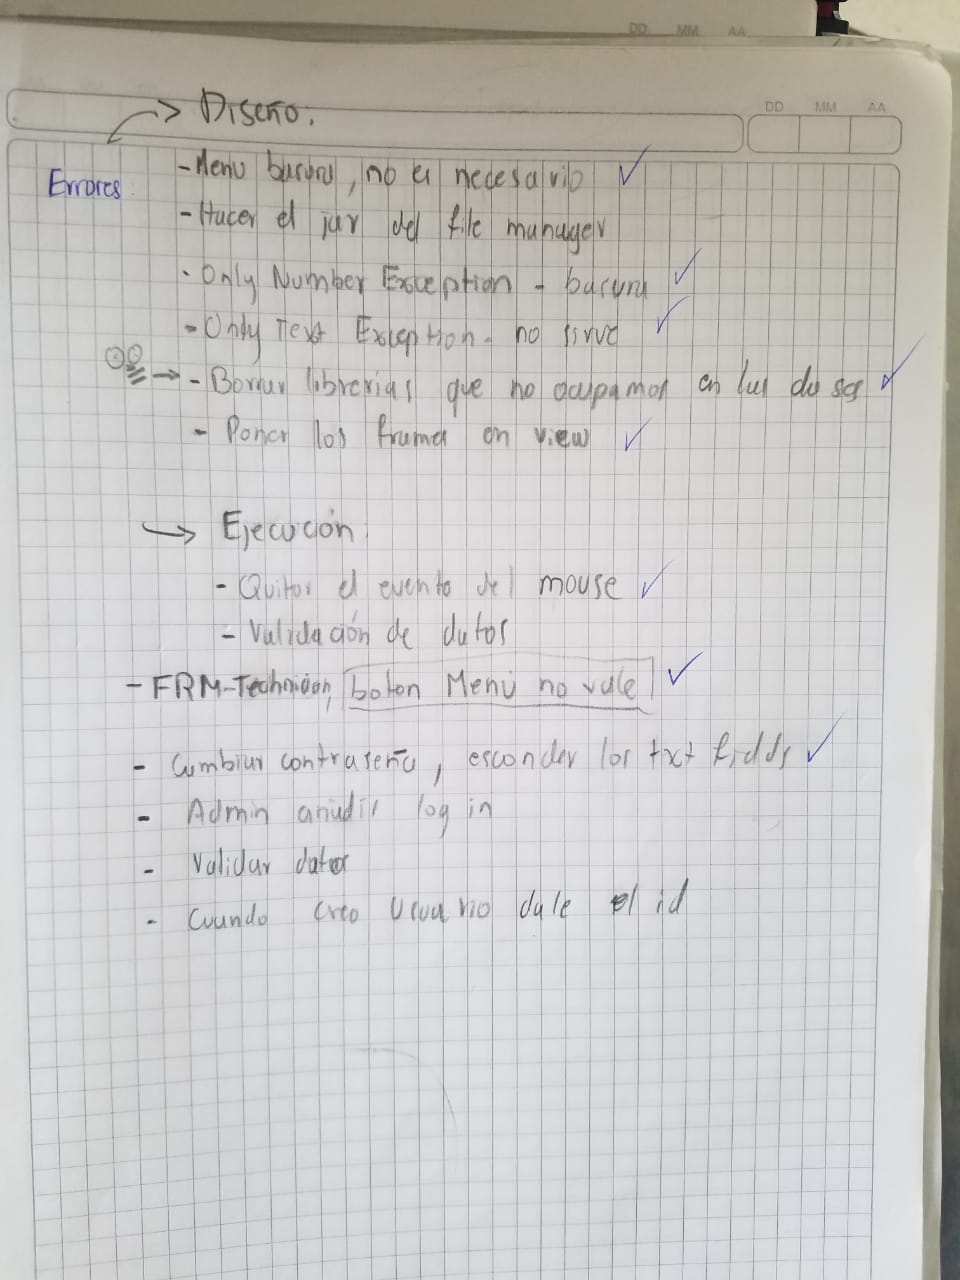 DD MM AA
DD MM AA
→ Diseño:
Errores:
- Menu basura, no es necesario ✓
- Hacer el jar del file manager
- Only Number Exception - basura ✓
- Only Text Exception - no sirve ✓
→ - Borrar librerias que no ocupamos en las
- Poner los frames en view ✓
→ Ejecución:
- Quitar el evento del mouse ✓
- Validación de datos
- FRM-Technician, boton Menú no vale ✓
- Cambiar contraseña, esconder los txt fields ✓
- Admin añadir log in
- Validar datos
- Cuando creo Usuario dale el id